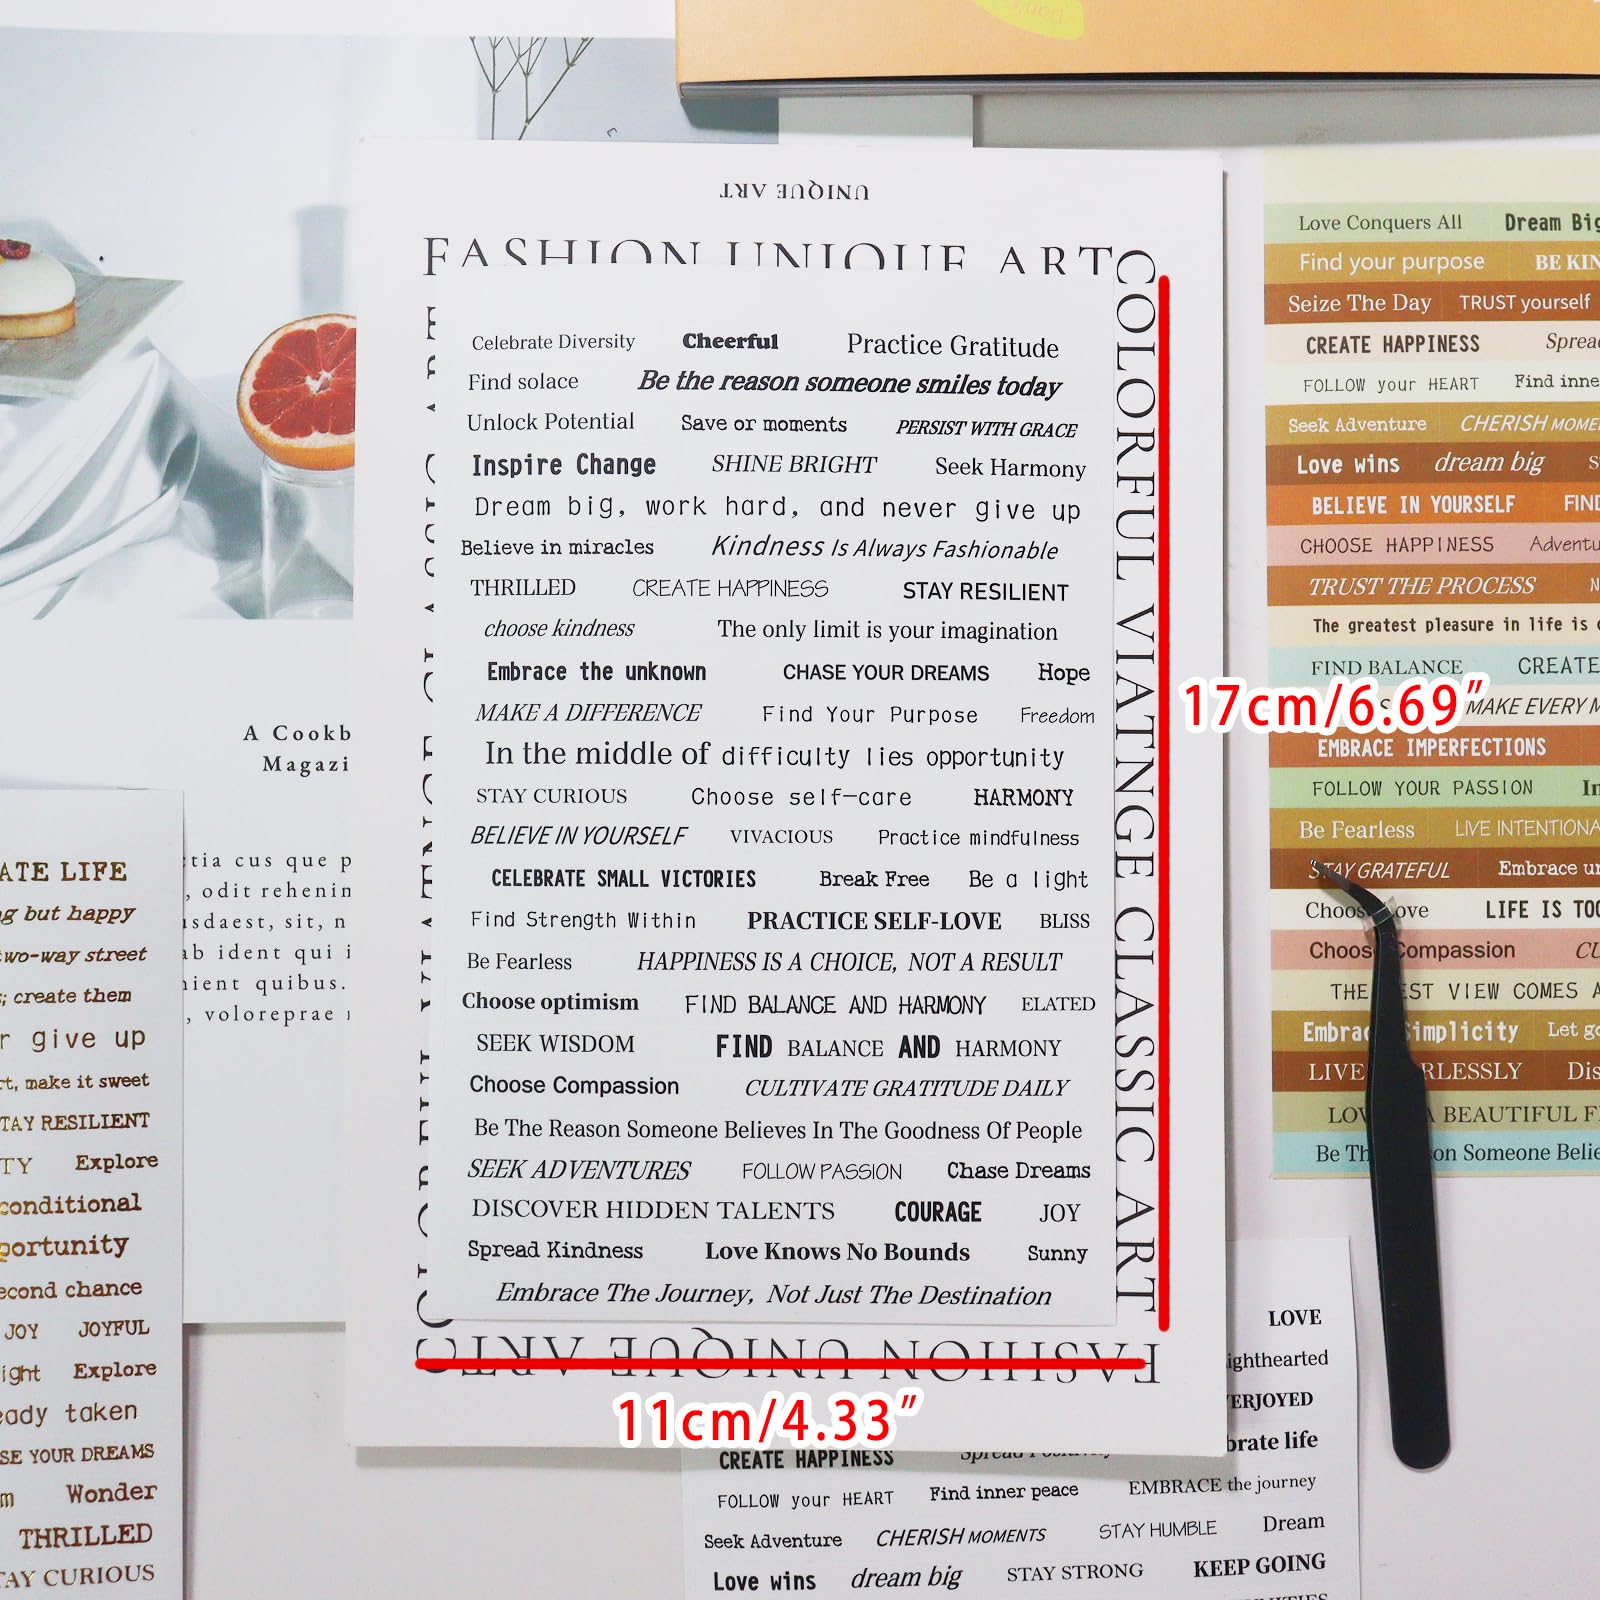 UNIQUE ART
FASHION UNIQUE ART
COLORFUL VIATNGE CLASSIC ART
FASHION UNIQUE ART
Celebrate Diversity Cheerful Practice Gratitude
Find solace Be the reason someone smiles today
Unlock Potential Save or moments PERSIST WITH GRACE
Inspire Change SHINE BRIGHT Seek Harmony
Dream big, work hard, and never give up
Believe in miracles Kindness Is Always Fashionable
THRILLED CREATE HAPPINESS STAY RESILIENT
choose kindness The only limit is your imagination
Embrace the unknown CHASE YOUR DREAMS Hope
MAKE A DIFFERENCE Find Your Purpose Freedom
In the middle of difficulty lies opportunity
STAY CURIOUS Choose self-care HARMONY
BELIEVE IN YOURSELF VIVACIOUS Practice mindfulness
CELEBRATE SMALL VICTORIES Break Free Be a light
Find Strength Within PRACTICE SELF-LOVE BLISS
Be Fearless HAPPINESS IS A CHOICE, NOT A RESULT
Choose optimism FIND BALANCE AND HARMONY ELATED
SEEK WISDOM FIND BALANCE AND HARMONY
Choose Compassion CULTIVATE GRATITUDE DAILY
Be The Reason Someone Believes In The Goodness Of People
SEEK ADVENTURES FOLLOW PASSION Chase Dreams
DISCOVER HIDDEN TALENTS COURAGE JOY
Spread Kindness Love Knows No Bounds Sunny
Embrace The Journey, Not Just The Destination
17cm/6.69"
11cm/4.33"
A Cookb
Magazi
tia cus que p
, odit rehenin
usdaest, sit, n
ab ident qui i
nient quibus.
, voloreprae
ATE LIFE
ng but happy
two-way street
; create them
r give up
rt, make it sweet
TAY RESILIENT
TY Explore
conditional
portunity
econd chance
JOY JOYFUL
ight Explore
eady taken
SE YOUR DREAMS
m Wonder
THRILLED
TAY CURIOUS
Love Conquers All Dream Big
Find your purpose BE KIN
Seize The Day TRUST yourself
CREATE HAPPINESS Sprea
FOLLOW your HEART Find inne
Seek Adventure CHERISH MOME
Love wins dream big S
BELIEVE IN YOURSELF FIND
CHOOSE HAPPINESS Adventu
TRUST THE PROCESS N
The greatest pleasure in life is
FIND BALANCE CREATE
S MAKE EVERY M
EMBRACE IMPERFECTIONS
FOLLOW YOUR PASSION In
Be Fearless LIVE INTENTIONA
STAY GRATEFUL Embrace un
Choose Love LIFE IS TOO
Choose Compassion CU
THE BEST VIEW COMES A
Embrace Simplicity Let go
LIVE FEARLESSLY Dis
LOV A BEAUTIFUL F
Be The Reason Someone Belie
LOVE
ighthearted
ERJOYED
brate life
CREATE HAPPINESS Spread Positivity
FOLLOW your HEART Find inner peace EMBRACE the journey
Seek Adventure CHERISH MOMENTS STAY HUMBLE Dream
Love wins dream big STAY STRONG KEEP GOING